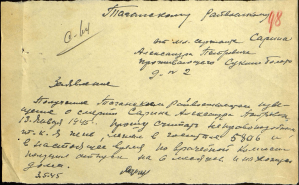 Таганскому Райвоенкому
98
а-64
от мл. сержанта Сарина
Александра Петровича
проживающего
д. № 2
Заявление
Получено Таганским Райвоенкоматом
о смерти Сарина Александра Петровича
13 января 1945. Прошу считать
т.к. я лежал в госпитале 5806 и
в настоящее время по врачебной комиссии
получил отпуск на 6 месяцев и нахожусь
дома.